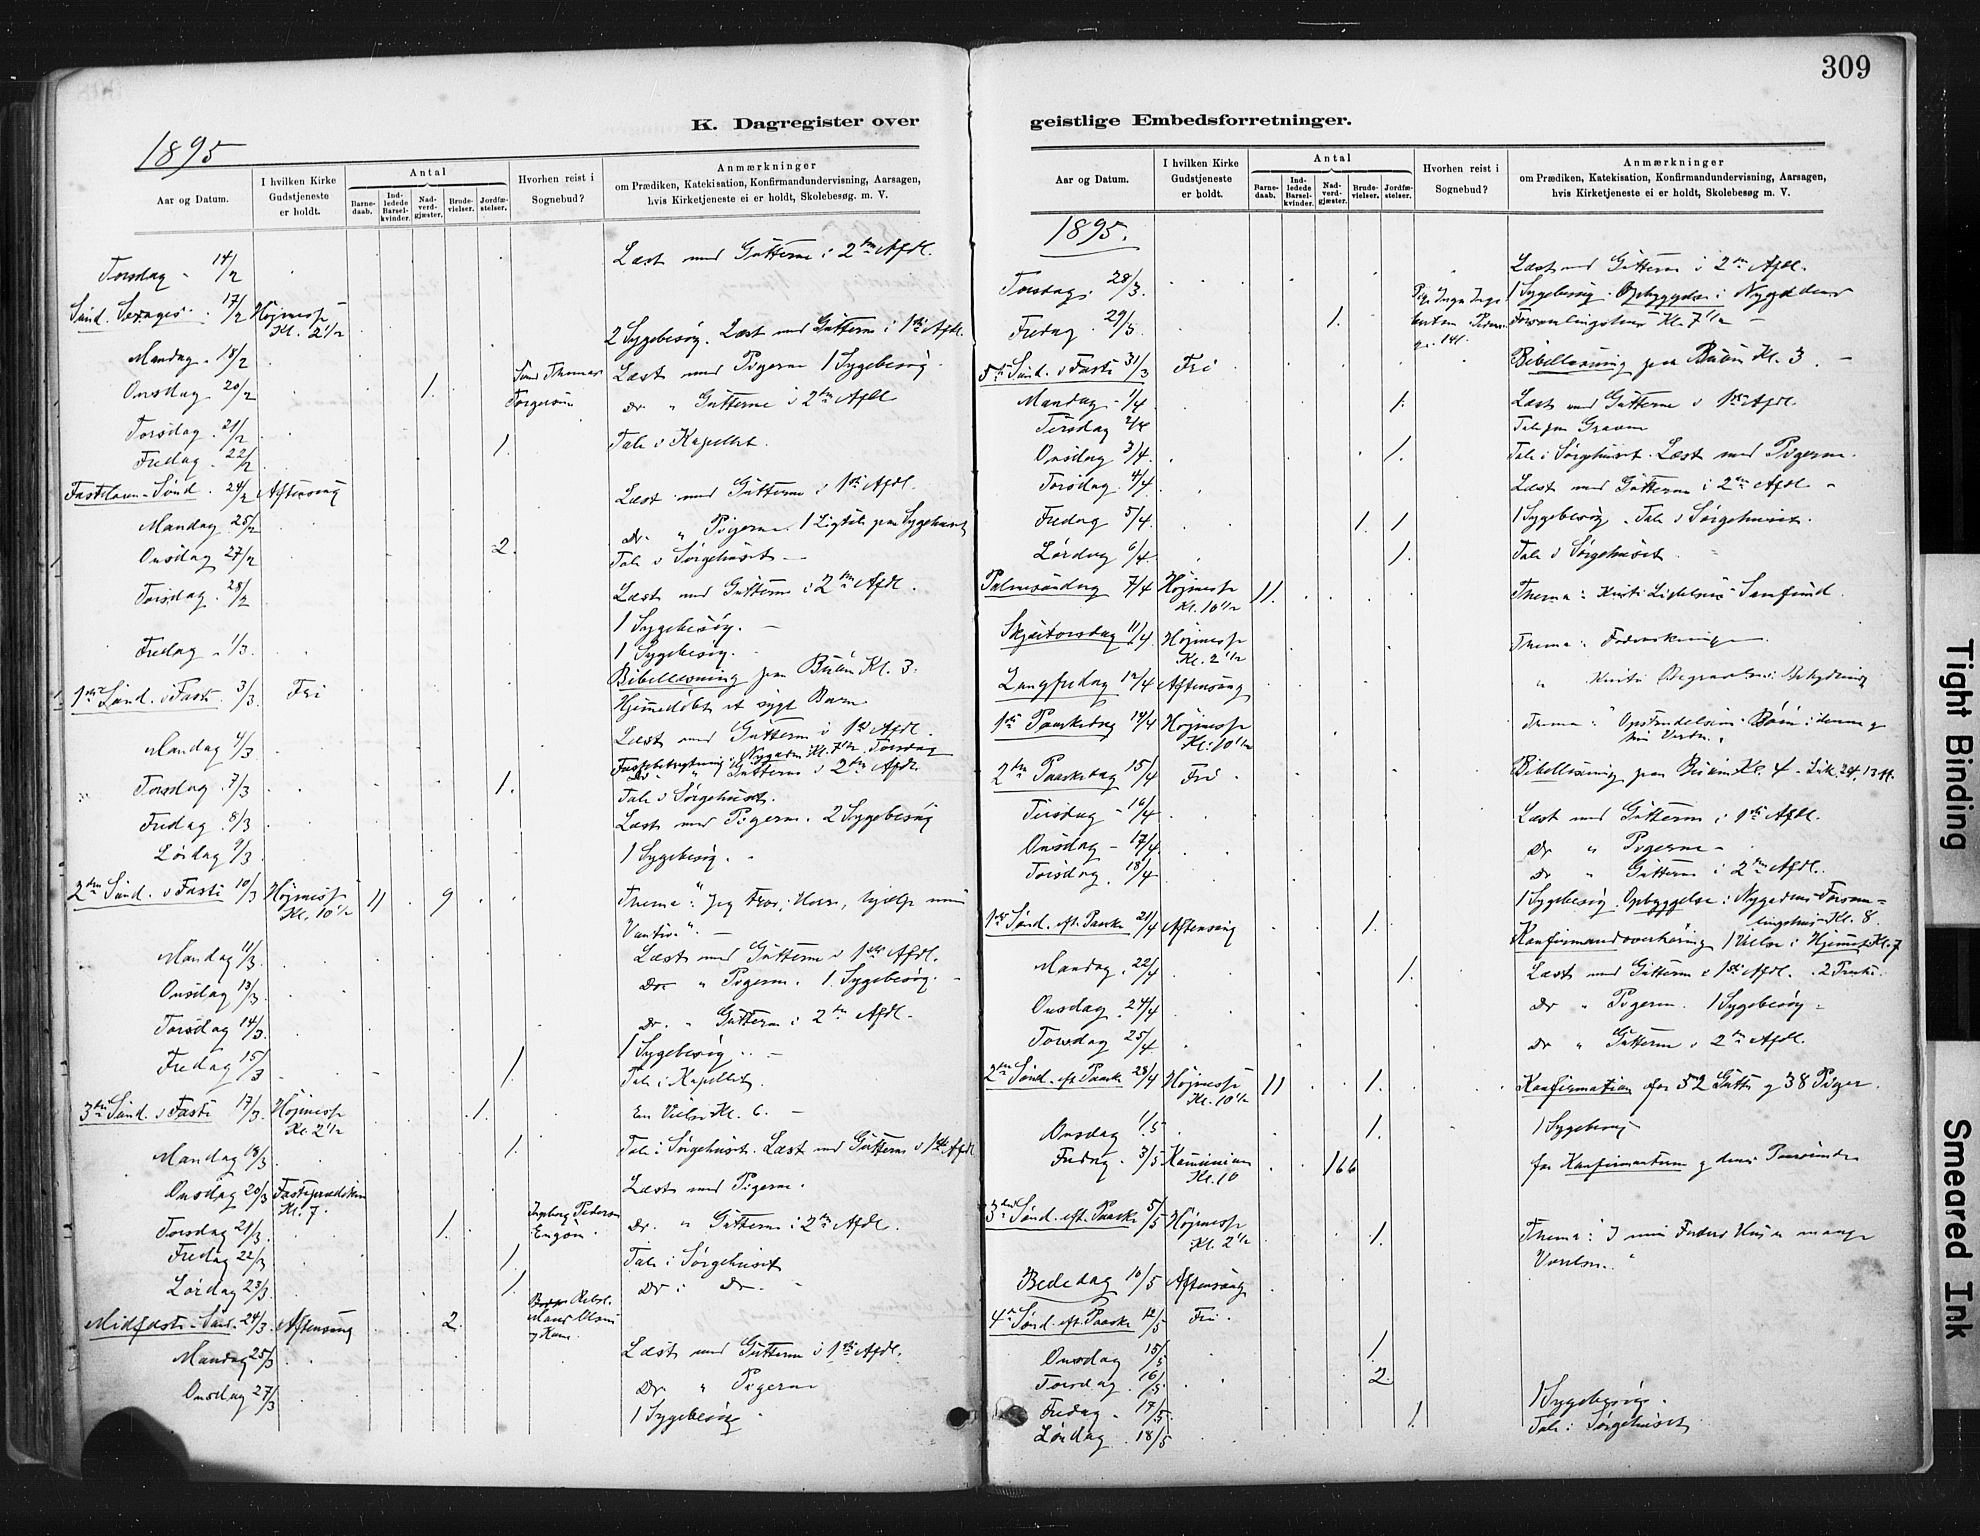 309
K. Dagregister over
geistlige Embedsforretninger.
1895
Aar og Datum.
I hvilken Kirke Gudstjeneste er holdt.
Antal
Barne-daab.
Ind-ledede Barsel-kvinder.
Nad-verd-gjæster.
Brude-vielser.
Jordfæ-stelser.
Hvorhen reist i Sognebud?
Anmærkninger
om Prædiken, Katekisation, Konfirmandundervisning, Aarsagen,
hvis Kirketjeneste ei er holdt, Skolebesøg m. V.
Torsdag 14/2 Læst med Gutterne i 2den Afdl.
Sünd. Sexages. 17/2 Højmesse Kl. 2 1/2
2 Sygebesög. Læst med Gutterne i 1ste Afdl.
Mandag 18/2 Læst med Pigerne 1 Sygebesög.
Onsdag 20/2 1. Thomas Torgersen Do " Gutterne i 2den Afdl.
Torsdag 21/2 Tale i Kapellet.
Fredag 22/2 1.
Fastelavn-Sönd. 24/2 Aftensang Læst med Gutterne i 1ste Afdl.
Mandag 25/2 Do " Pigerne. 1 Ligtale paa Sygehuset
Onsdag 27/2 2. Tale i Sørgehuset
Torsdag 28/2 Læst med Gutterne i 2den Afdl.
1 Sygebesög.
Fredag 1/3 1 Sygebesög.
Bibellæsning paa Kl. 3.
1ste Sünd. i Faste 3/3 Fri Hjemmedøbt et sygt Barn
Mandag 4/3 Læst med Gutterne i 1ste Afdl.
Nygaden Kl. 7 1/2 Torsdag
Torsdag 7/3 1. Do " Gutterne i 2den Afdl.
Tale i Sørgehuset.
Fredag 8/3 Læst med Pigerne. 2 Sygebesög
Lördag 9/3 1 Sygebesög.
2den Sünd. i Faste 10/3 Højmesse Kl. 10 1/2 11 9 Thema: "Jeg tror, Herre, hjælp min
Vantro."
Mandag 11/3 Læst med Gutterne i 1ste Afdl.
Onsdag 13/3 Do " Pigerne. 1 Sygebesög.
Torsdag 14/3 Do " Gutterne i 2den Afdl.
Fredag 15/3 1 Sygebesög
1. Tale i Kapellet.
3die Sünd. i Faste 17/3 Højmesse Kl. 2 1/2 1. En Vielse Kl. 6.
Mandag 18/3 1. Tale i Sørgehuset. Læst med Gutterne i 1ste Afdl
Onsdag 20/3 Fasteprædiken Kl. 7. Læst med Pigerne.
Torsdag 21/3 1. Ingeborg Pedersen Do " Gutterne i 2den Afdl.
Fredag 22/3 1. Tale i Sørgehuset
Lördag 23/3 1. Do i Do
Midfaste-Sönd. 24/3 Aftensang 2
Mandag 25/3 Læst med Gutterne i 1ste Afdl.
Onsdag 27/3 Do " Pigerne
1 Sygebesög
Aar og Datum.
I hvilken Kirke Gudstjeneste er holdt.
Antal
Barne-daab.
Ind-ledede Barsel-kvinder.
Nad-verd-gjæster.
Brude-vielser.
Jordfæ-stelser.
Hvorhen reist i Sognebud?
Anmærkninger
om Prædiken, Katekisation, Konfirmandundervisning, Aarsagen,
hvis Kirketjeneste ei er holdt, Skolebesøg m. V.
1895.
Torsdag 28/3 Læst med Gutterne i 2den Afdl.
1 Sygebesög. Opbyggelse i Nygadens
Fredag 29/3 1. Forsamlingshus Kl. 7 1/2
5te Sünd. i Faste 31/3 Fri Bibellæsning paa Kl. 3
Mandag 1/4 1. Læst med Gutterne i 1ste Afdl.
Tirsdag 2/4 Tale paa Graven
Onsdag 3/4 1. Tale i Sørghuset. Læst med Pigerne.
Torsdag 4/4 Læst med Gutterne i 2den Afdl
Fredag 5/4 1. 1. 1 Sygebesög. Tale i Sørgehuset.
Lördag 6/4 1. Tale i Sørgehuset
Palmesöndag 7/4 Højmesse Kl. 10 1/2 11. Thema: Kristi Lidelses Samfund.
Skjærtorsdag 11/4 Højmesse Kl. 2 1/2 Thema:
Langfredag 12/4 Aftensang " Kristi Begravelses Betydning
1ste Paaskedag 14/4 Højmesse Kl. 10 1/2 Thema: "Opstandelsens Börn i denne og
2den Paaskedag 15/4 Fri Bibellæsning paa Kl. 4 - Luk. 24, 13 ff.
Tirsdag 16/4 Læst med Gutterne i 1ste Afdl.
Onsdag 17/4 Do " Pigerne
Torsdag 18/4 Do " Gutterne i 2den Afdl.
1 Sygebesög. Opbyggelse i Nygadens Forsam-
lingshus Kl. 8
1ste Sönd. eft. Paaske 21/4 Aftensang 1. Konfirmandoverhöring 1 Vielse i Hjemmet Kl. 7
Mandag 22/4 1. Læst med Gutterne i 1ste Afdl.
Onsdag 24/4 Do " Pigerne. 1 Sygebesög
Torsdag 25/4 Do " Gutterne i 2den Afdl.
2den Sönd. eft. Paaske 28/4 Højmesse Kl. 10 1/2 11 1. Konfirmation for 52 Gutter og 38 Piger.
Onsdag 1/5 1. 1 Sygebesög
Fredag 3/5 Kommunion Kl. 10 166 for Konfirmanterne og deres Paarörende
3die Sönd. eft. Paaske 5/5 Højmesse Kl. 2 1/2 1. Thema: I min Faders Hus er mange
Værelser."
Bededag 10/5 Aftensang
4de Sönd. eft. Paaske 12/5 Fri.
Onsdag 15/5 1
Torsdag 16/5 2
Fredag 17/5 1. 1 Sygebesög.
Lördag 18/5 Tale i Sørgehuset
Tight Binding
Smeared Ink